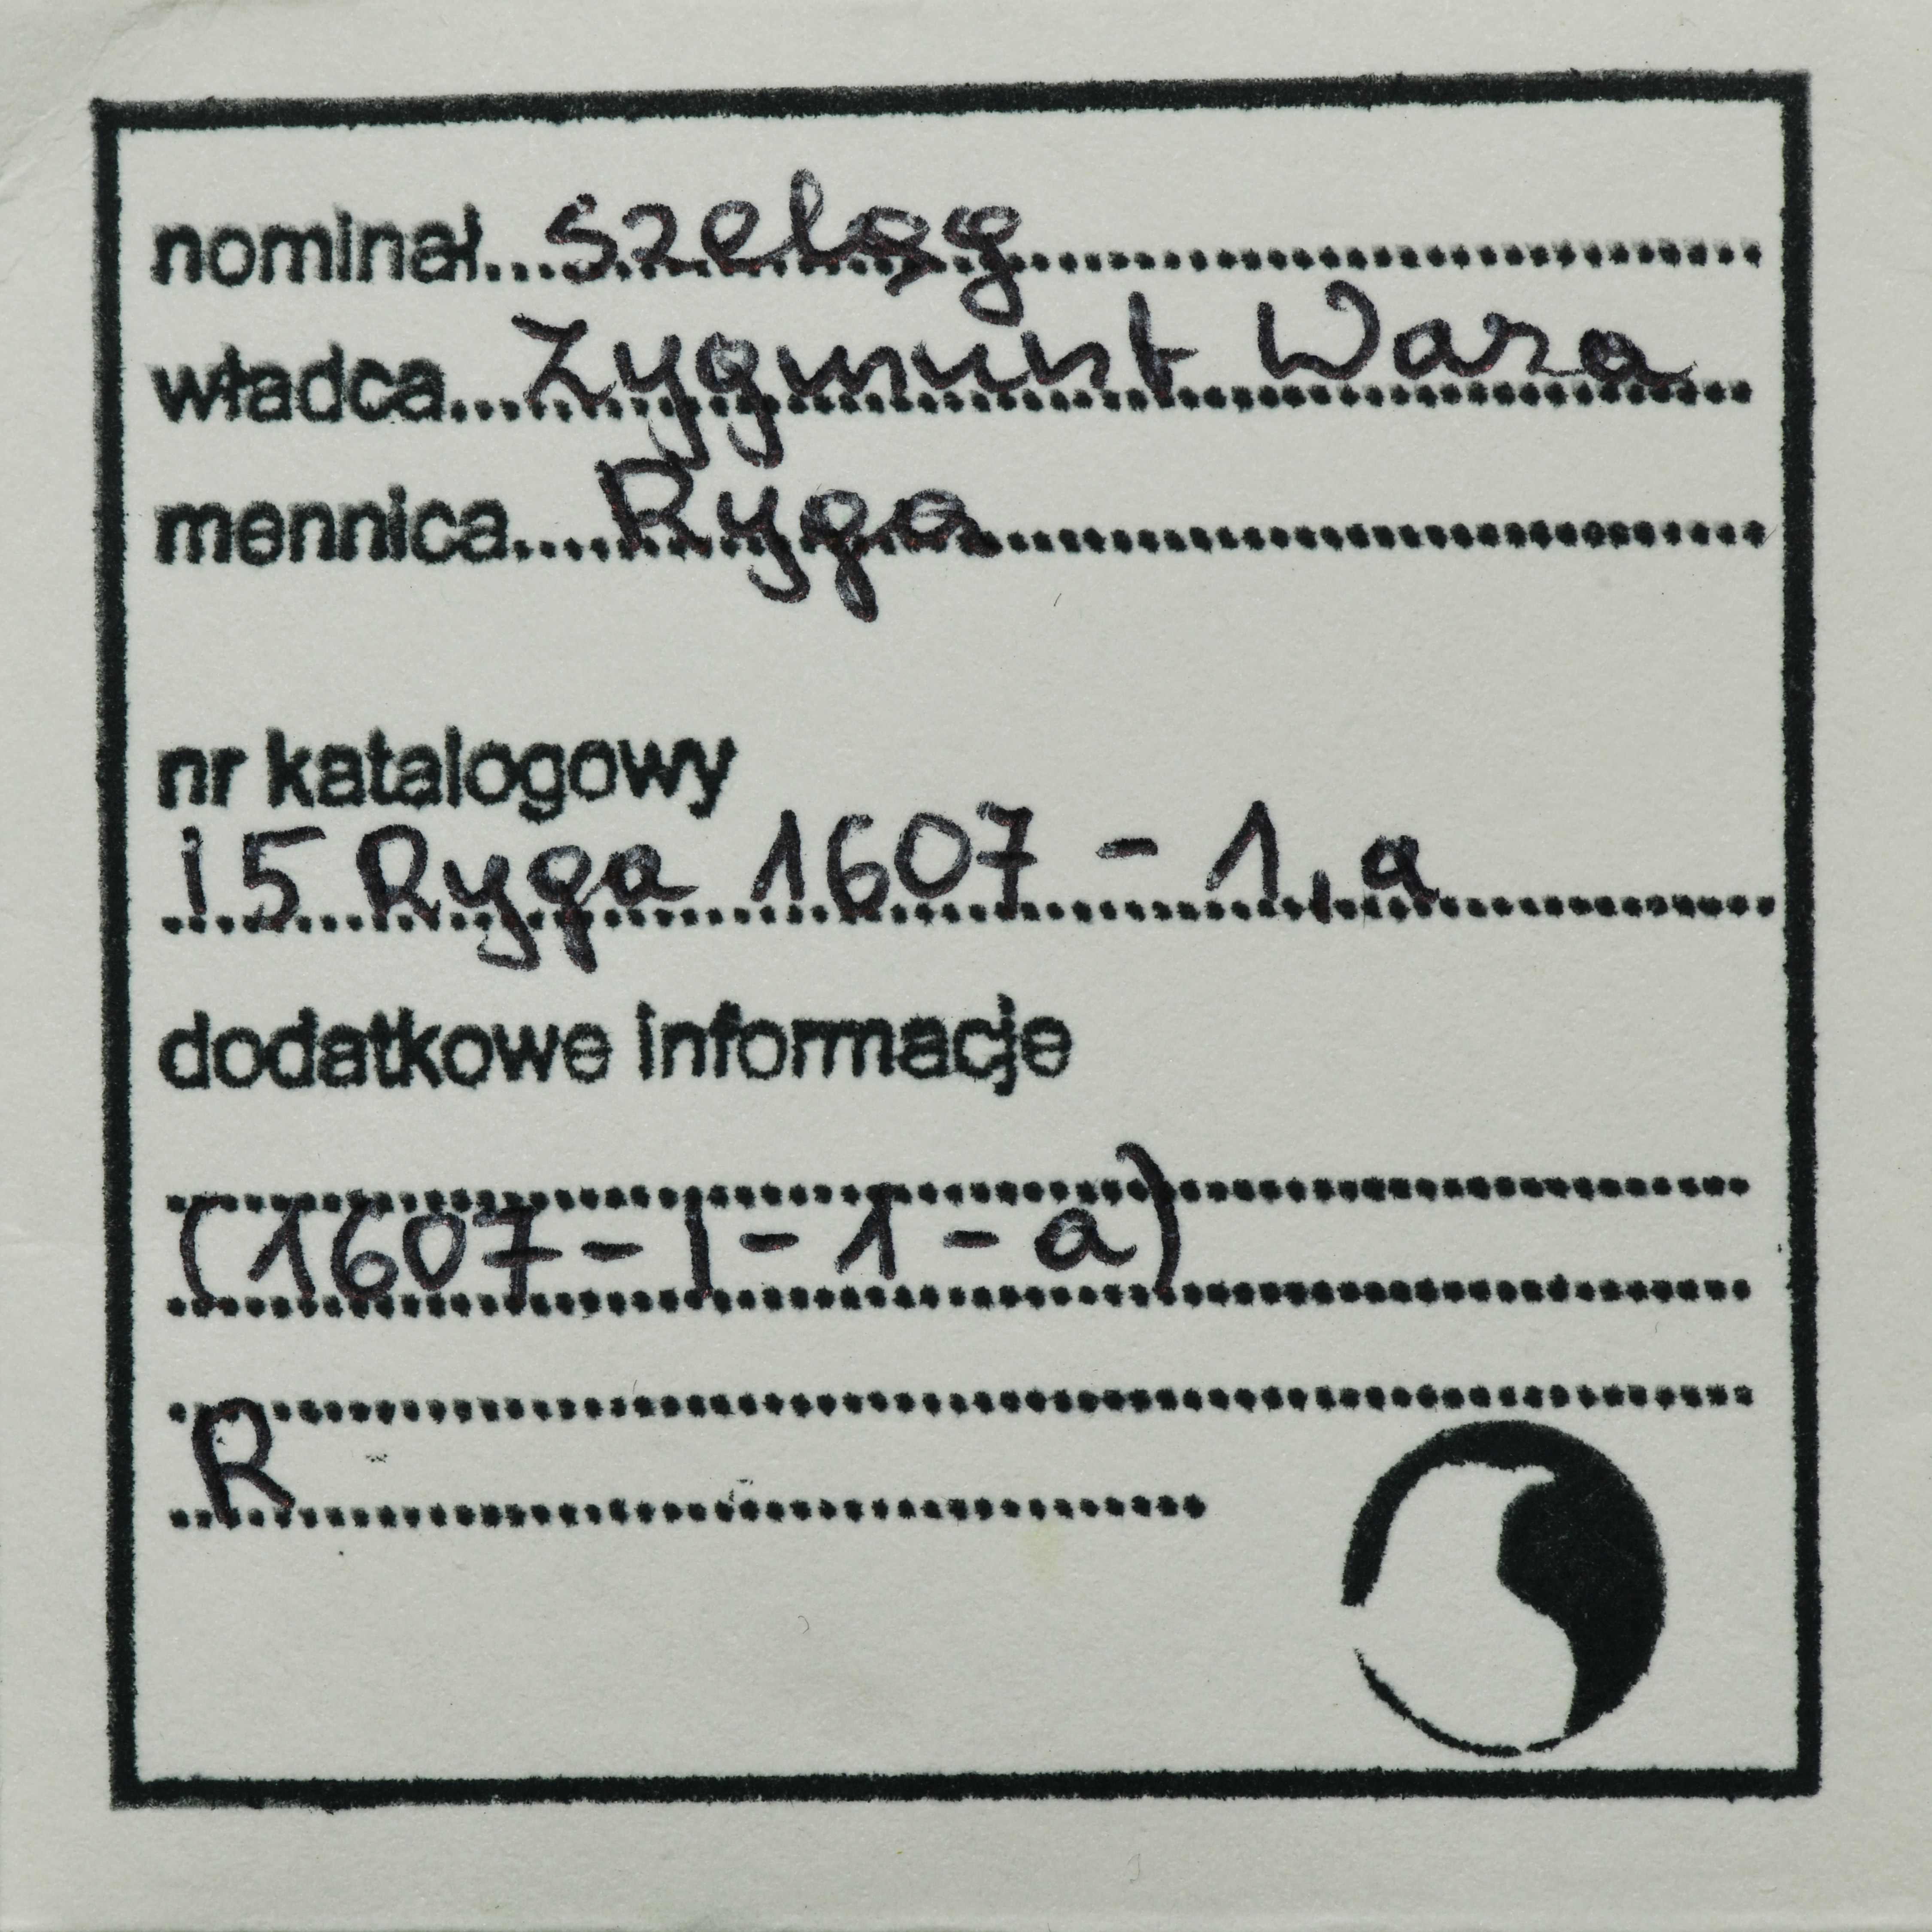 nominał...szeląg
władca...Zygmunt Waza
mennica...Ryga
nr katalogowy
i5 Ryga 1607 - 1, a
dodatkowe informacje
(1607 - I - 1 - a)
R